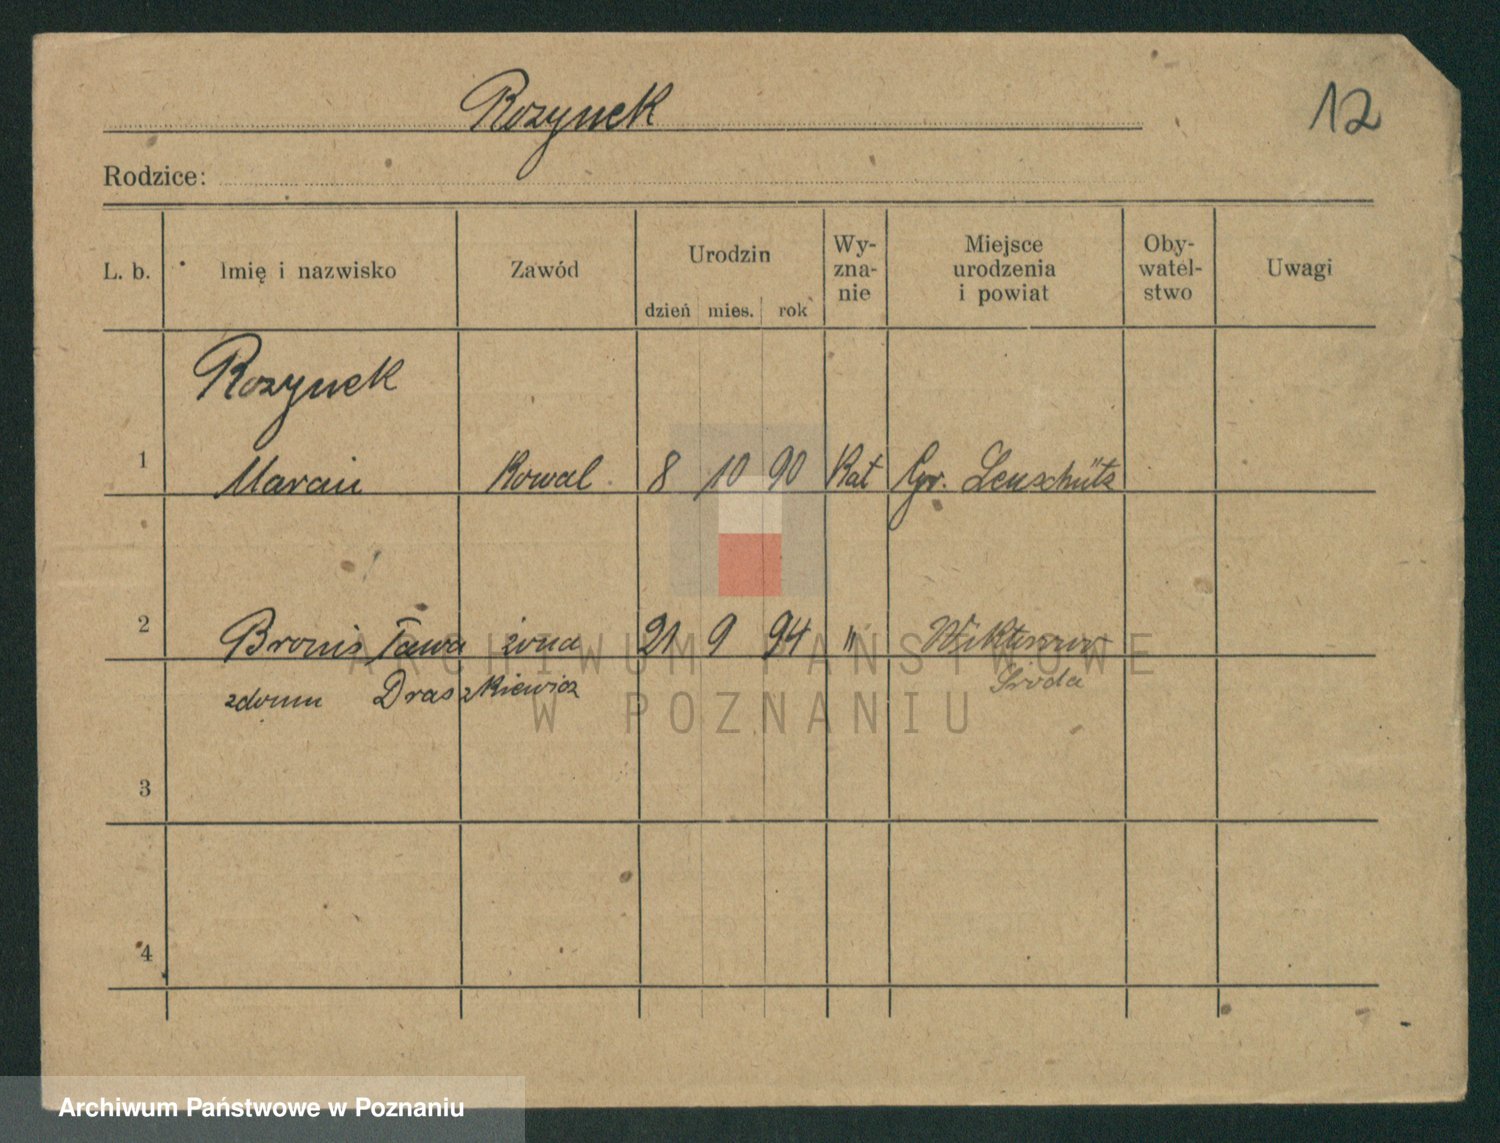 Rozynek
12
Rodzice:
L. b. Imię i nazwisko Zawód Urodzin dzień mies. rok Wy-zna-nie Miejsce urodzenia i powiat Oby-watel-stwo Uwagi
Rozynek
1 Marcin Kowal 8 10 90 Kat Gr. Leuschütz
2 Bronisława żona 21 9 94 "
zdomu Draszkiewicz Środa
3
4
ARCHIWUM PAŃSTWOWE
W POZNANIU
Archiwum Państwowe w Poznaniu